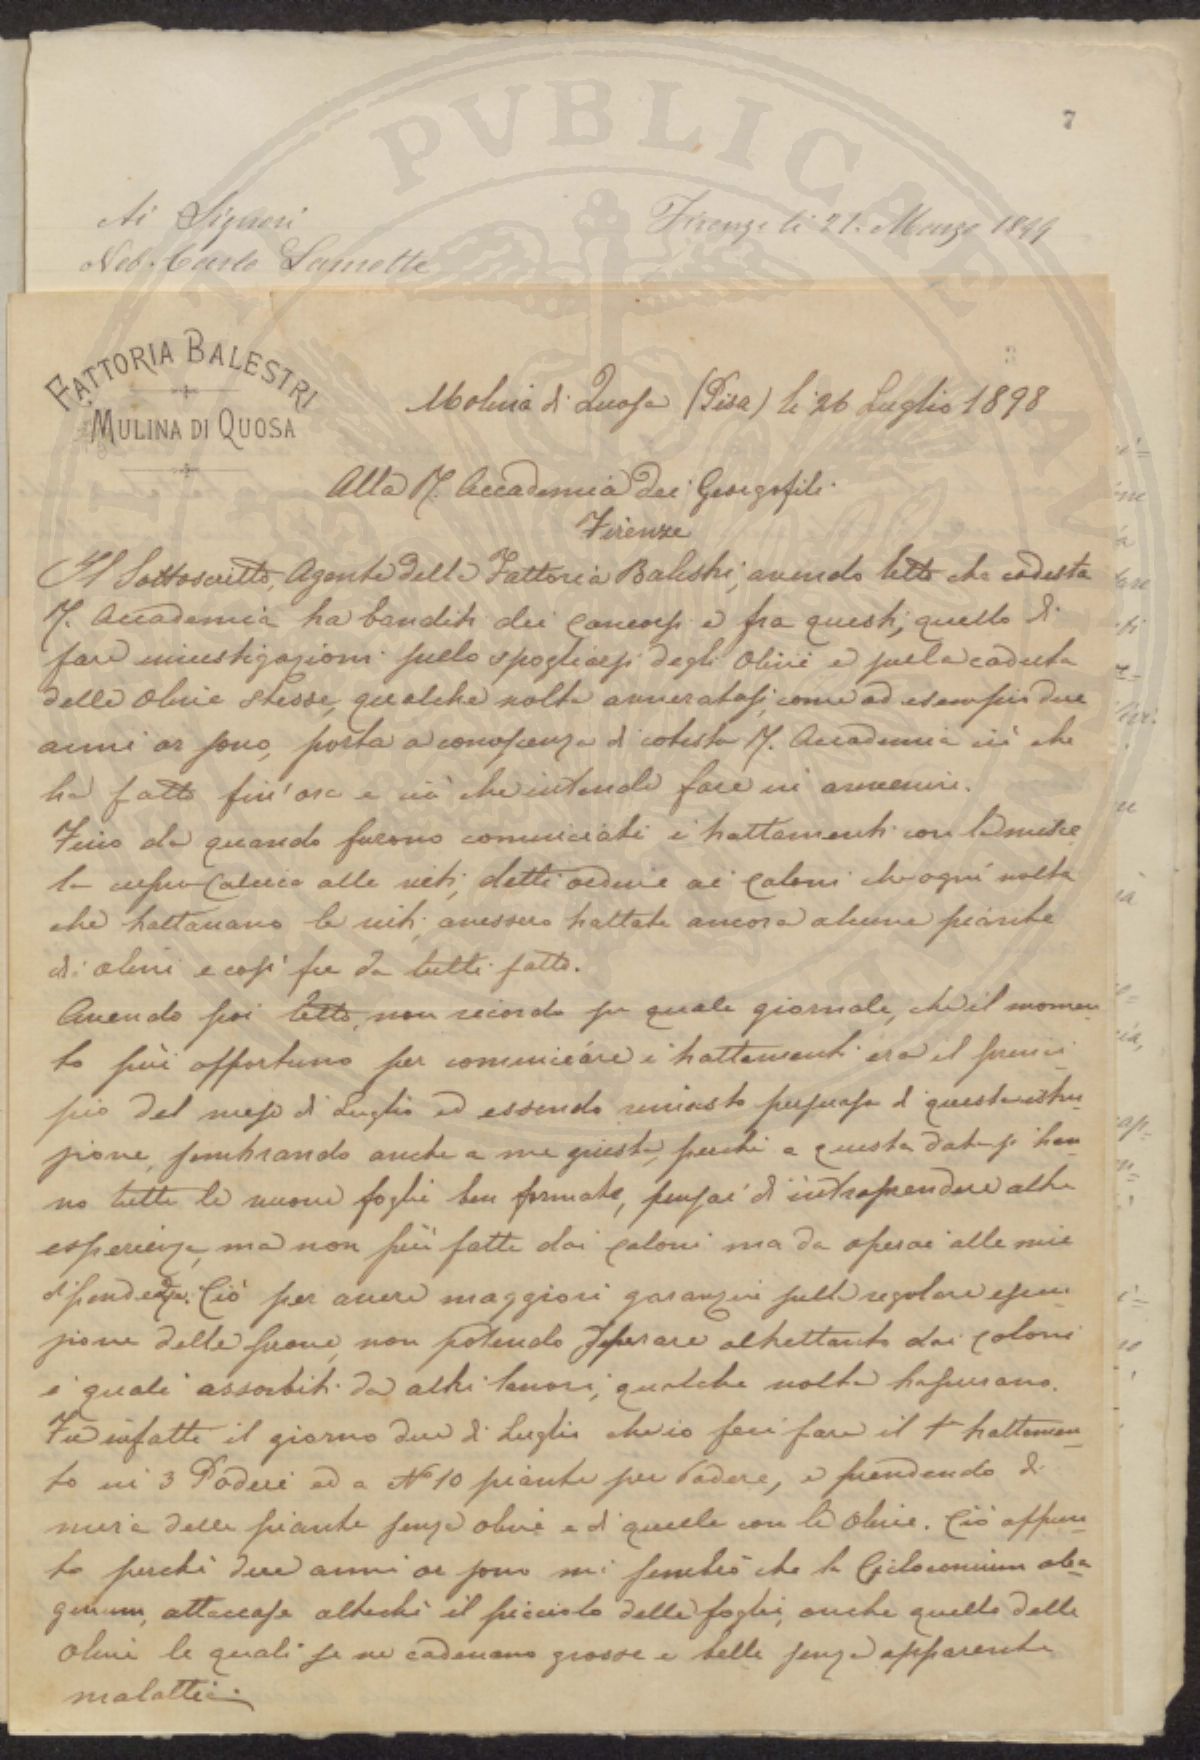 7
Ai Signori
Firenze li 21. Marzo 1899
Nob. Carlo Lamotte
FATTORIA BALESTRI
MULINA DI QUOSA
3
Molina di Quosa (Pisa) li 26 Luglio 1898
Alla R. Accademia dei Georgofili
Firenze
Il Sottoscritto, Agente della Fattoria Balestri, avendo letto che codesta
R. Accademia ha banditi dei Concorsi e fra questi, quello di
fare investigazioni sullo spogliarsi degli Olivi e sulla caduta
delle Olive stesse, qualche volta avveratasi, come ad esempio due
anni or sono, porta a conoscenza di cotesta R. Accademia ciò che
ha fatto fin'ora e ciò che intende fare in avvenire.
Fino da quando furono cominciati i trattamenti con la misce
la cupro-calcica alle viti, detti ordine ai Coloni che ogni volta
che trattavano le viti, avessero trattate ancora alcune piante
di olivi e così fu da tutti fatto.
Avendo poi letto, non ricordo su quale giornale, che il momen-
to più opportuno per cominciare i trattamenti era il princi-
pio del mese di Luglio ed essendo rimasto persuaso di questa istru-
zione, sembrando anche a me giusta, perchè a questa data si han-
no tutte le nuove foglie ben formate, pensai di intraprendere altre
esperienze, ma non più fatte dai coloni ma da operai alle mie
dipendenze. Ciò per avere maggiori garanzie sulla regolare esecu-
zione delle prove, non potendo sperare altrettanto dai Coloni
i quali assorbiti da altri lavori, qualche volta trascurano.
Fu infatti il giorno due di Luglio che io feci fare il 1° trattamen-
to in 3 Poderi ed a N° 10 piante per Podere, e prendendo di
mira delle piante senza olive e di quelle con le Olive. Ciò appun-
to perchè due anni or sono mi sembrò che la Cicloconium olea-
ginum, attaccasse altrechè il picciolo delle foglie, anche quello delle
Olive le quali se ne cadevano grosse e belle senza apparente
malattia.